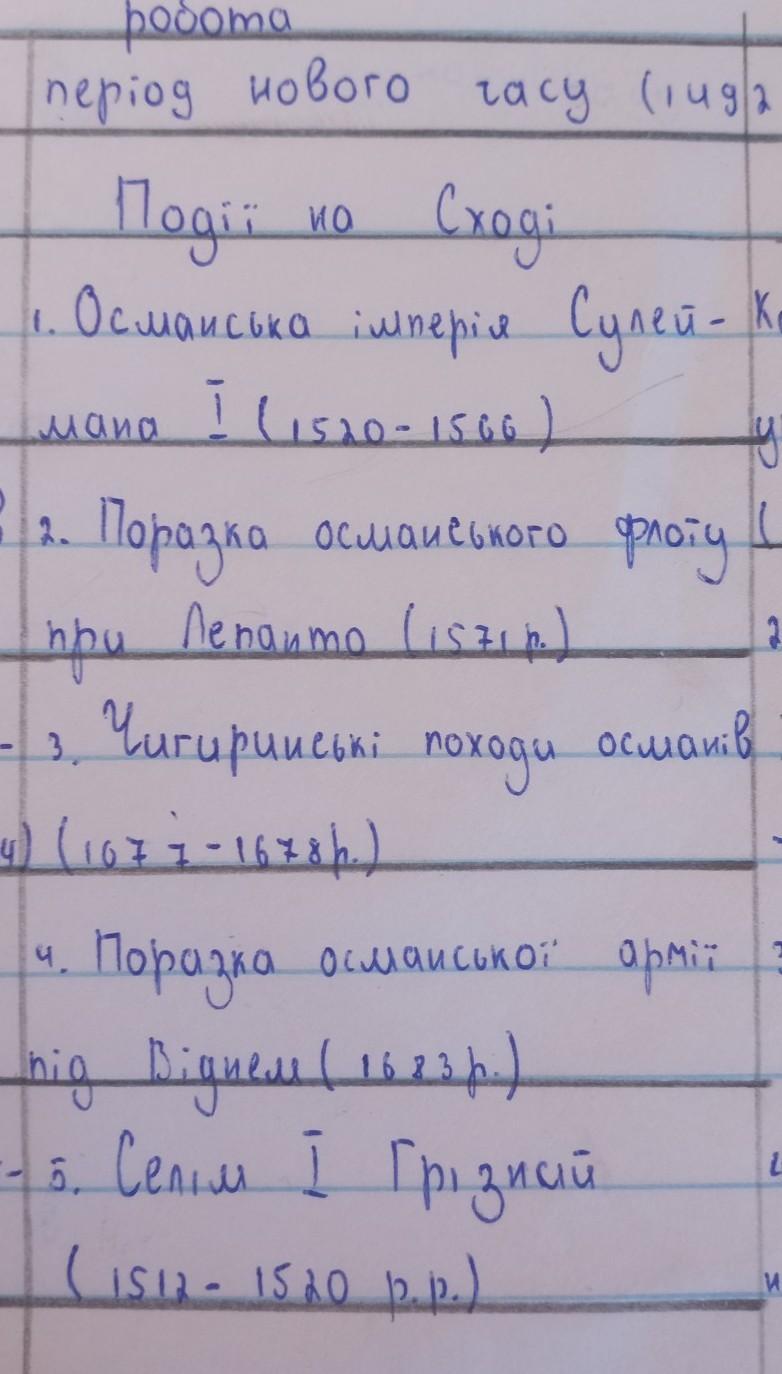 робота
період нового часу (1492
Події на Сході
1. Османська імперія Сулей-
мана І (1520-1566)
2. Поразка османського флоту
при Лепанто (1571 р.)
3. Чигиринські походи османів
(1677-1678 р.)
4. Поразка османської армії
під Віднем (1683 р.)
5. Селім І Грізний
(1512-1520 р.р.)